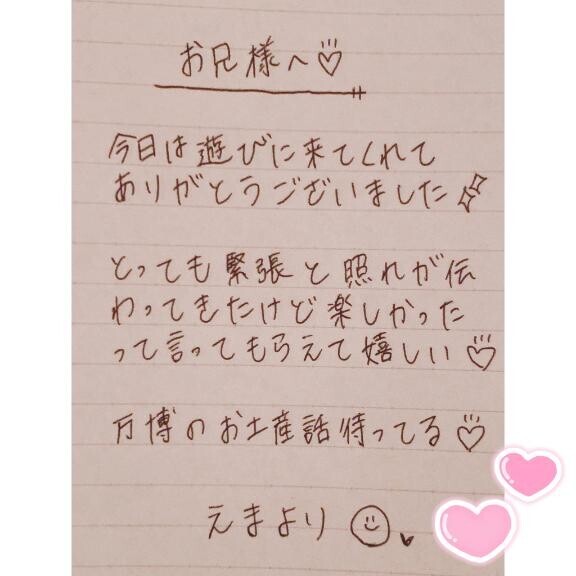 お兄様へ♡
今日は遊びに来てくれて
ありがとうございました
とっても緊張と照れが伝
わってきたけど楽しかった
って言ってもらえて嬉しい♡
万博のお土産話待ってる♡
えまより